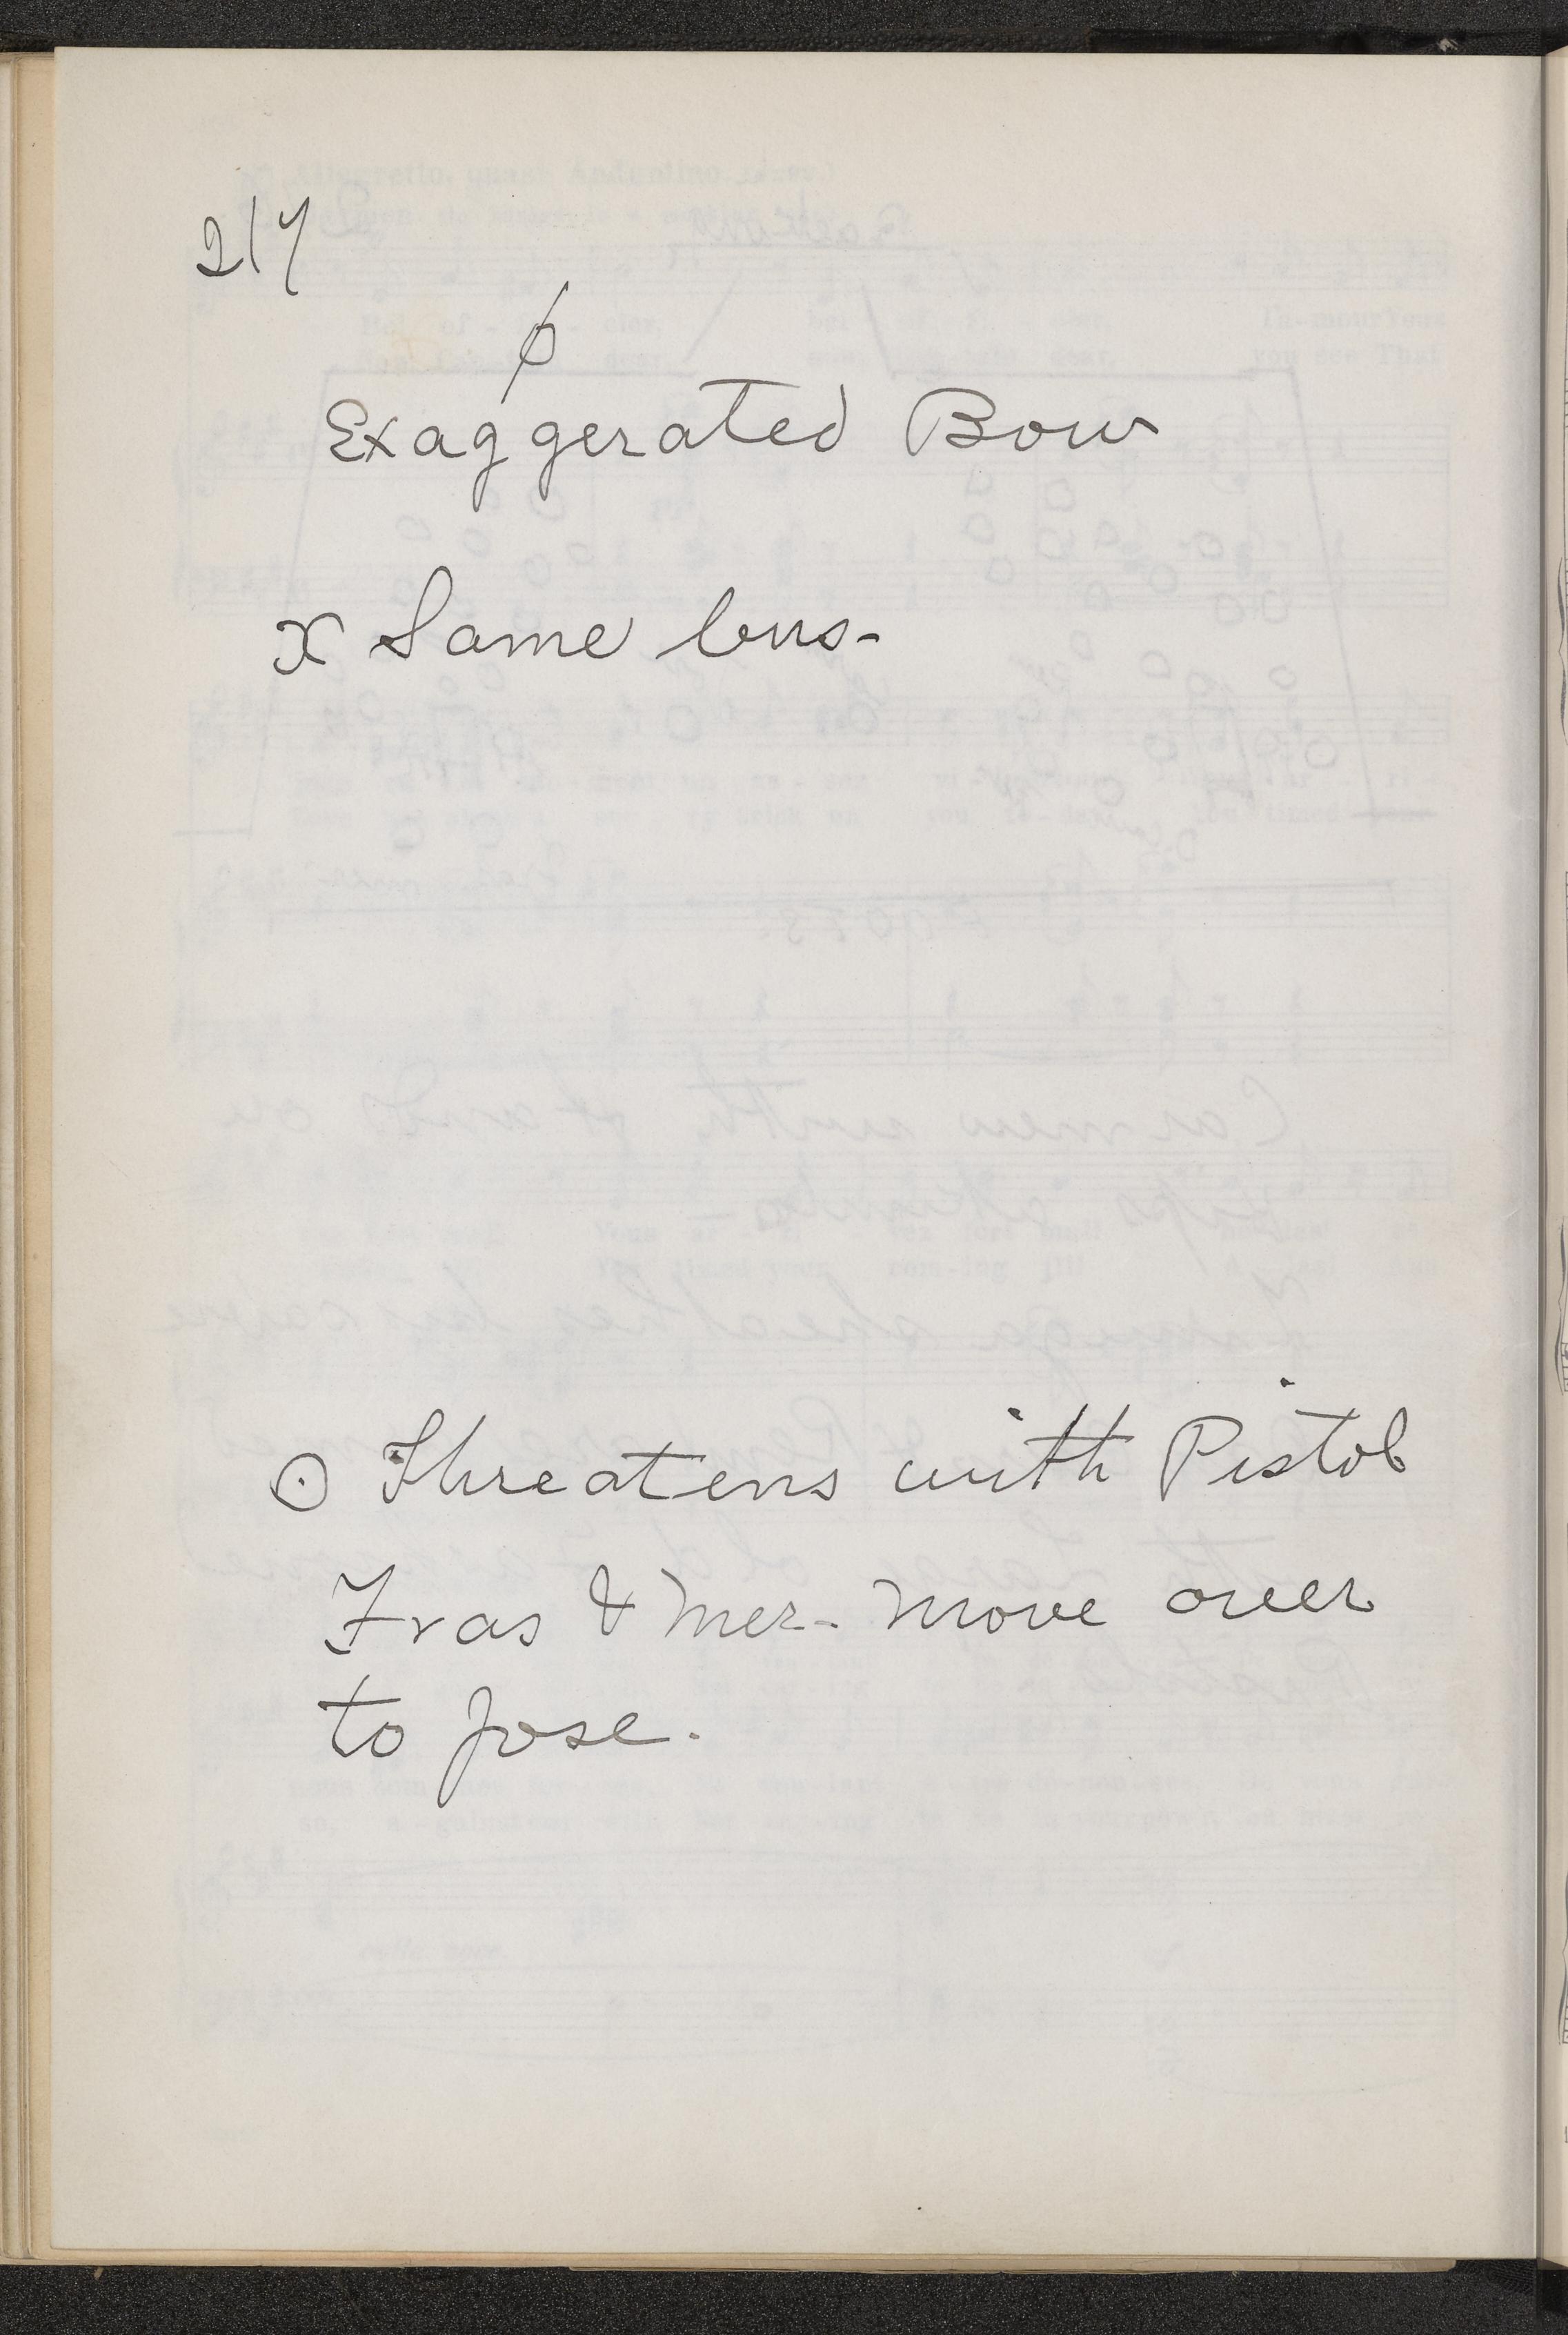 217
ϕ
Exaggerated Bow
x Same bus-
⊙ Threatens with Pistol
Fras & Mer- move over
to Jose.